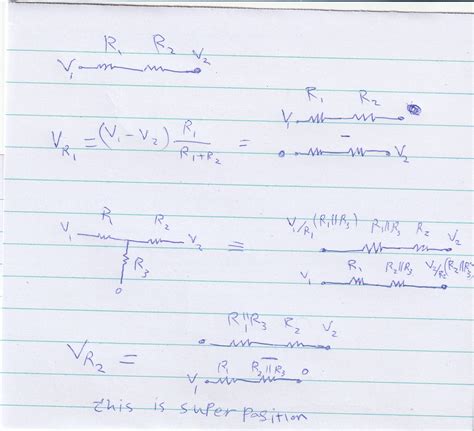 R₁ R₂
V₁ V₂
R₁ R₂
V₁
V_R₁ = (V₁ - V₂) R₁ / R₁+R₂ = -
0 V₂
R₁ R₂
V₁ V₂
R₃
0
≡
V₁/R₁ (R₁||R₃) R₁||R₃ R₂ V₂
R₁ R₂||R₃ V₂/R₂ (R₂||R₃
V₁
R₁||R₃ R₂ V₂
V_R₂ = -
R₁ R₂||R₃ 0
V₁
this is superposition